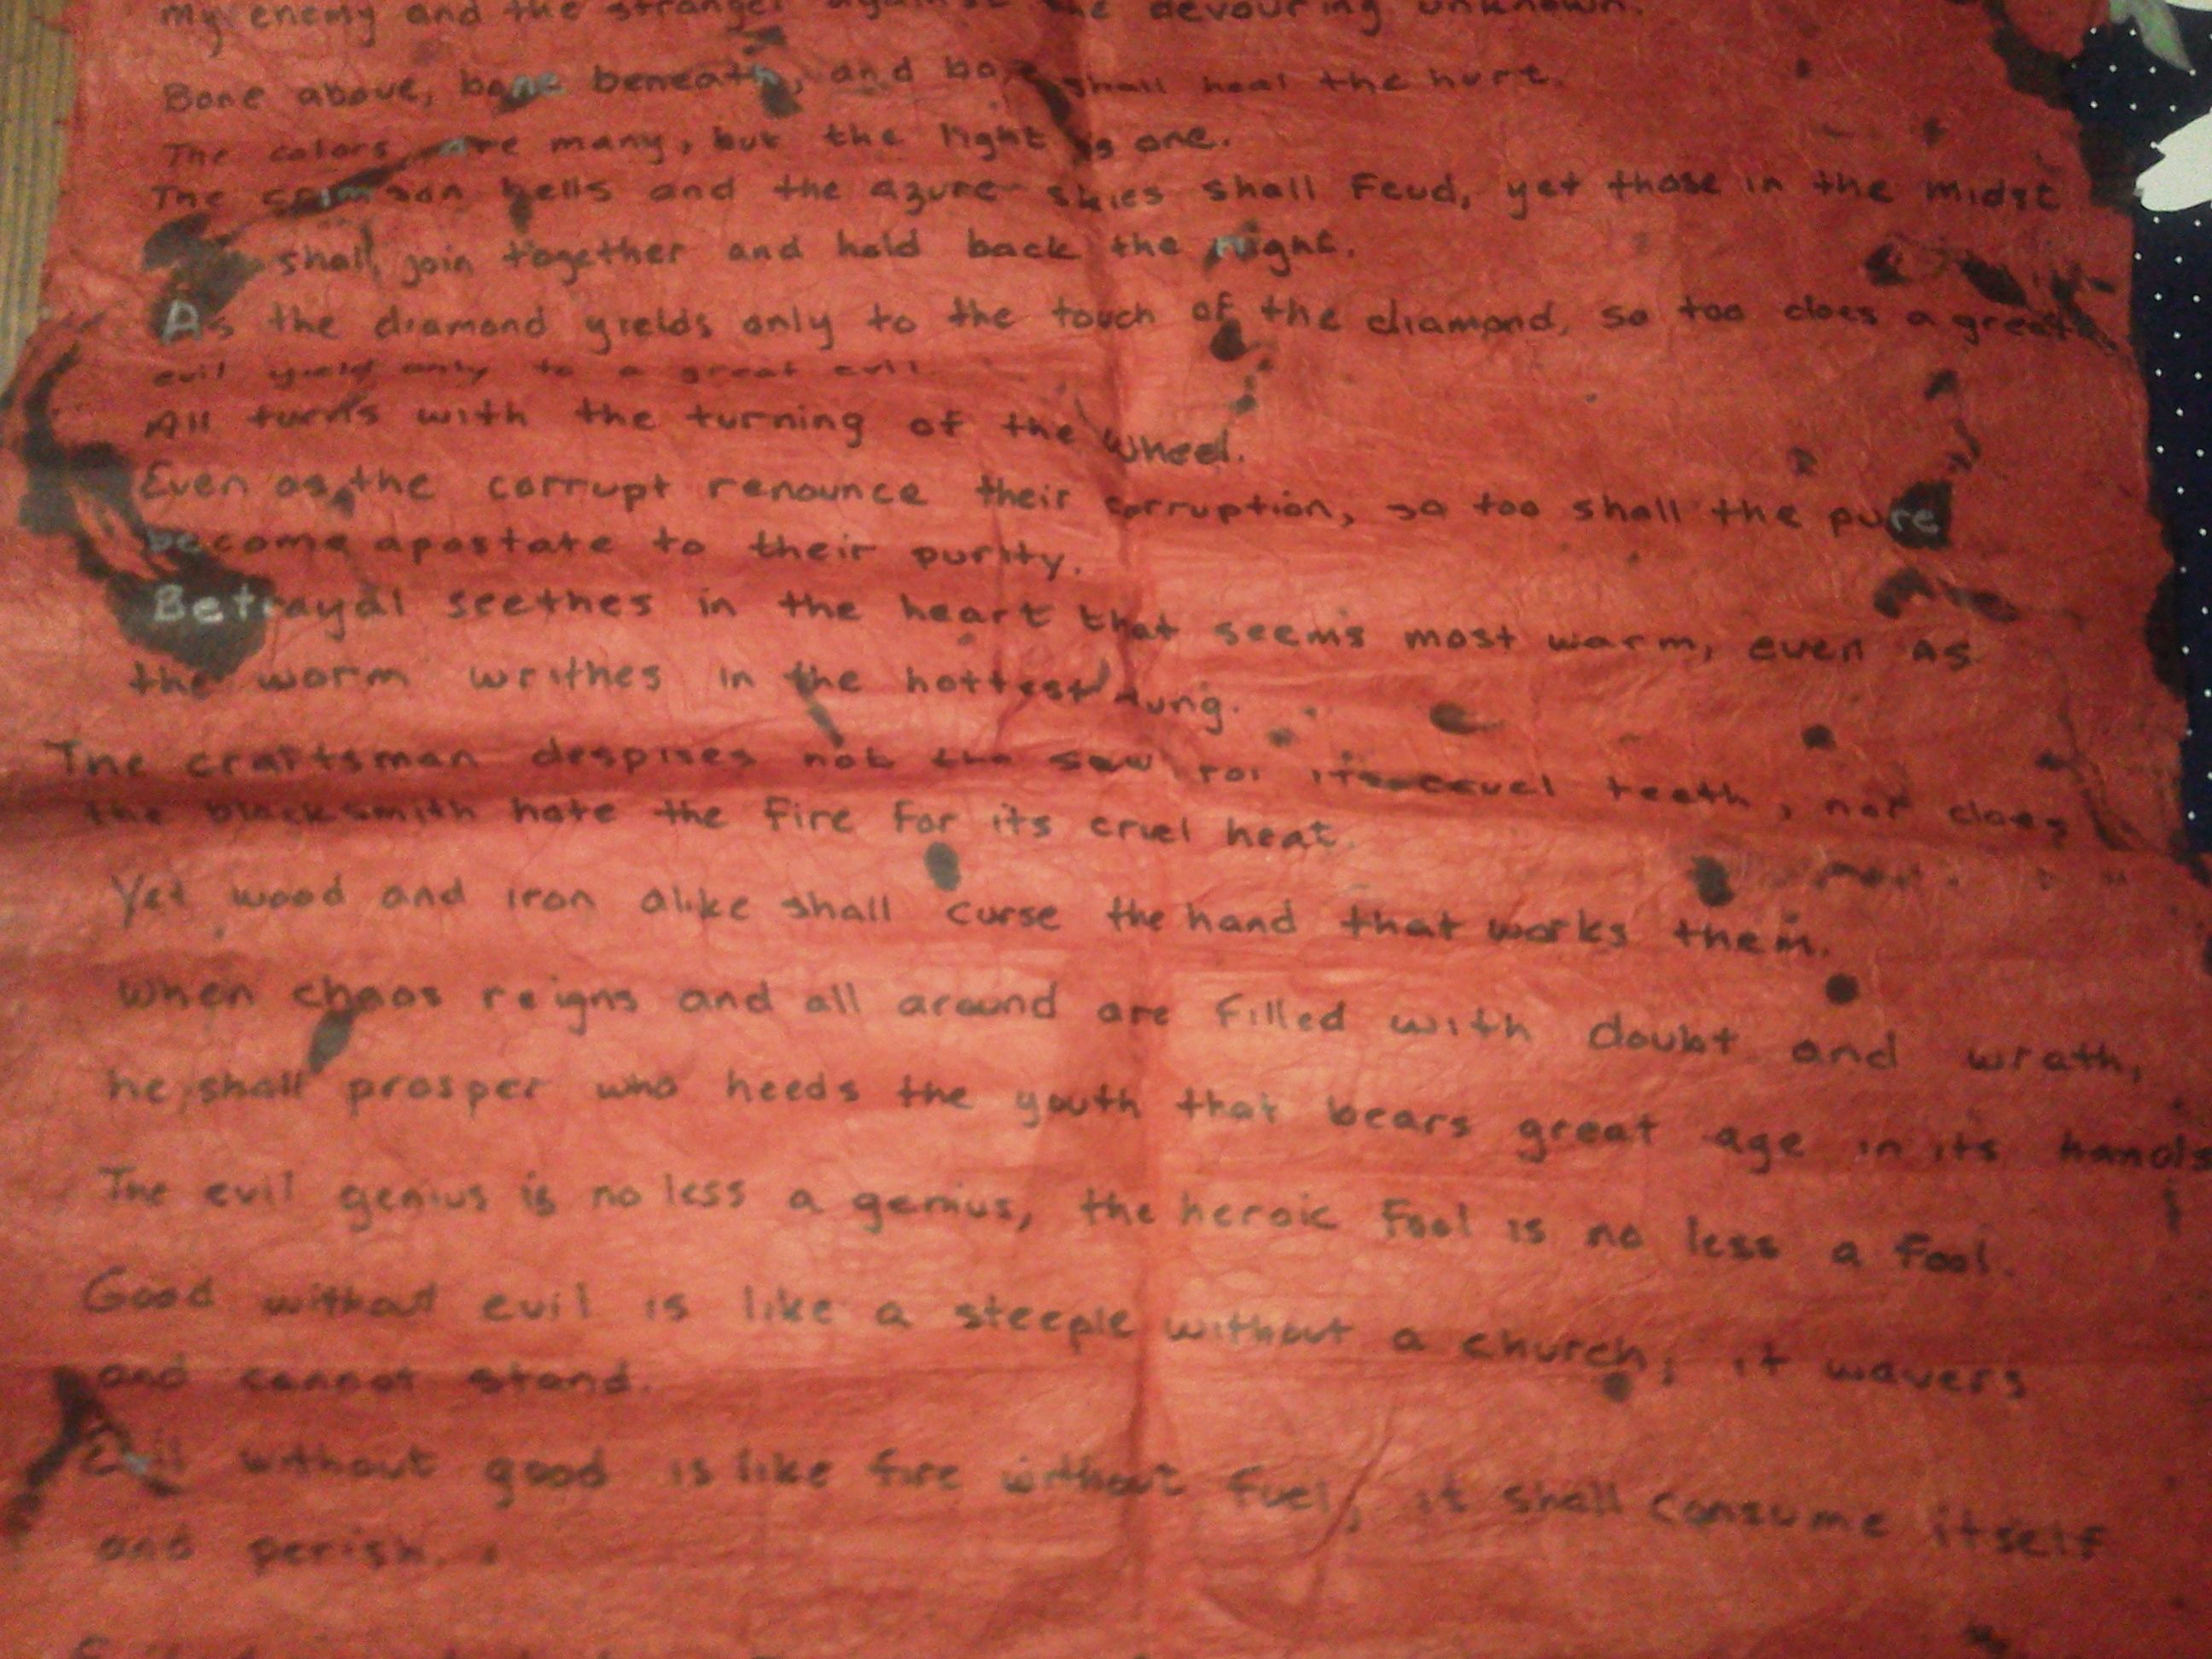 my enemy and the stranger against the devouring unknown.
Bone above, bone beneath, and bone shall heal the hurt.
The colors are many, but the light is one.
The crimson hells and the azure skies shall Feud, yet those in the midst
shall join together and hold back the night.
As the diamond yields only to the touch of the diamond, so too does a great
evil yield only to a great evil.
All turns with the turning of the wheel.
Even as the corrupt renounce their corruption, so too shall the pure
become apostate to their purity.
Betrayal seethes in the heart that seems most warm, even as
the worm writhes in the hottest dung.
The craftsman despises not the saw for its cruel teeth, nor does
the blacksmith hate the fire for its cruel heat.
Yet wood and iron alike shall curse the hand that works them.
When chaos reigns and all around are filled with doubt and wrath,
he shall prosper who heeds the youth that bears great age in its hands
The evil genius is no less a genius, the heroic fool is no less a fool.
Good without evil is like a steeple without a church; it wavers
and cannot stand.
Evil without good is like fire without fuel; it shall consume itself
and perish.